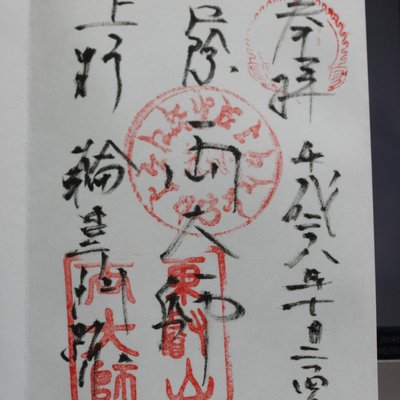 奉拝 平成二八年十月二四
両大師
上野 輪王寺門跡
東叡山
両大師